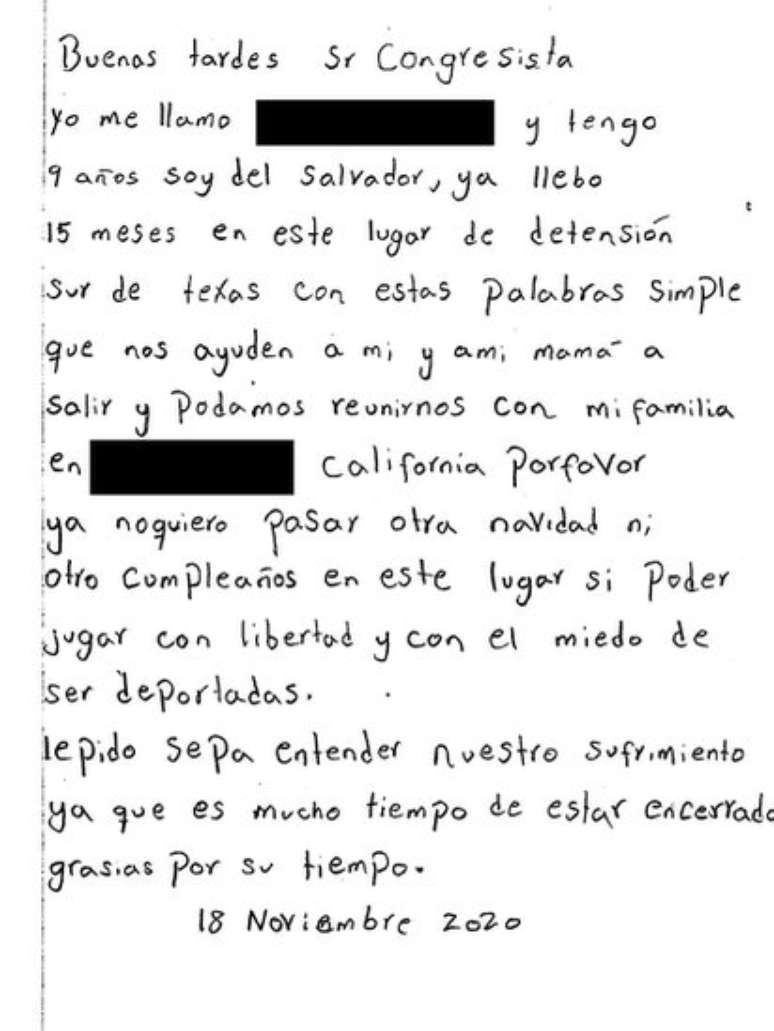 Buenas tardes Sr Congresista
yo me llamo y tengo
9 años soy del Salvador, ya llebo
15 meses en este lugar de detensión
sur de texas con estas palabras simple
que nos ayuden a mi y ami mamá a
salir y Podamos reunirnos con mi familia
en California Porfavor
ya noquiero pasar otra navidad ni
otro cumpleaños en este lugar si Poder
jugar con libertad y con el miedo de
ser deportadas.
lepido sepa entender nuestro sufrimiento
ya que es mucho tiempo de estar encerrado
grasias por su tiempo.
18 Noviembre 2020